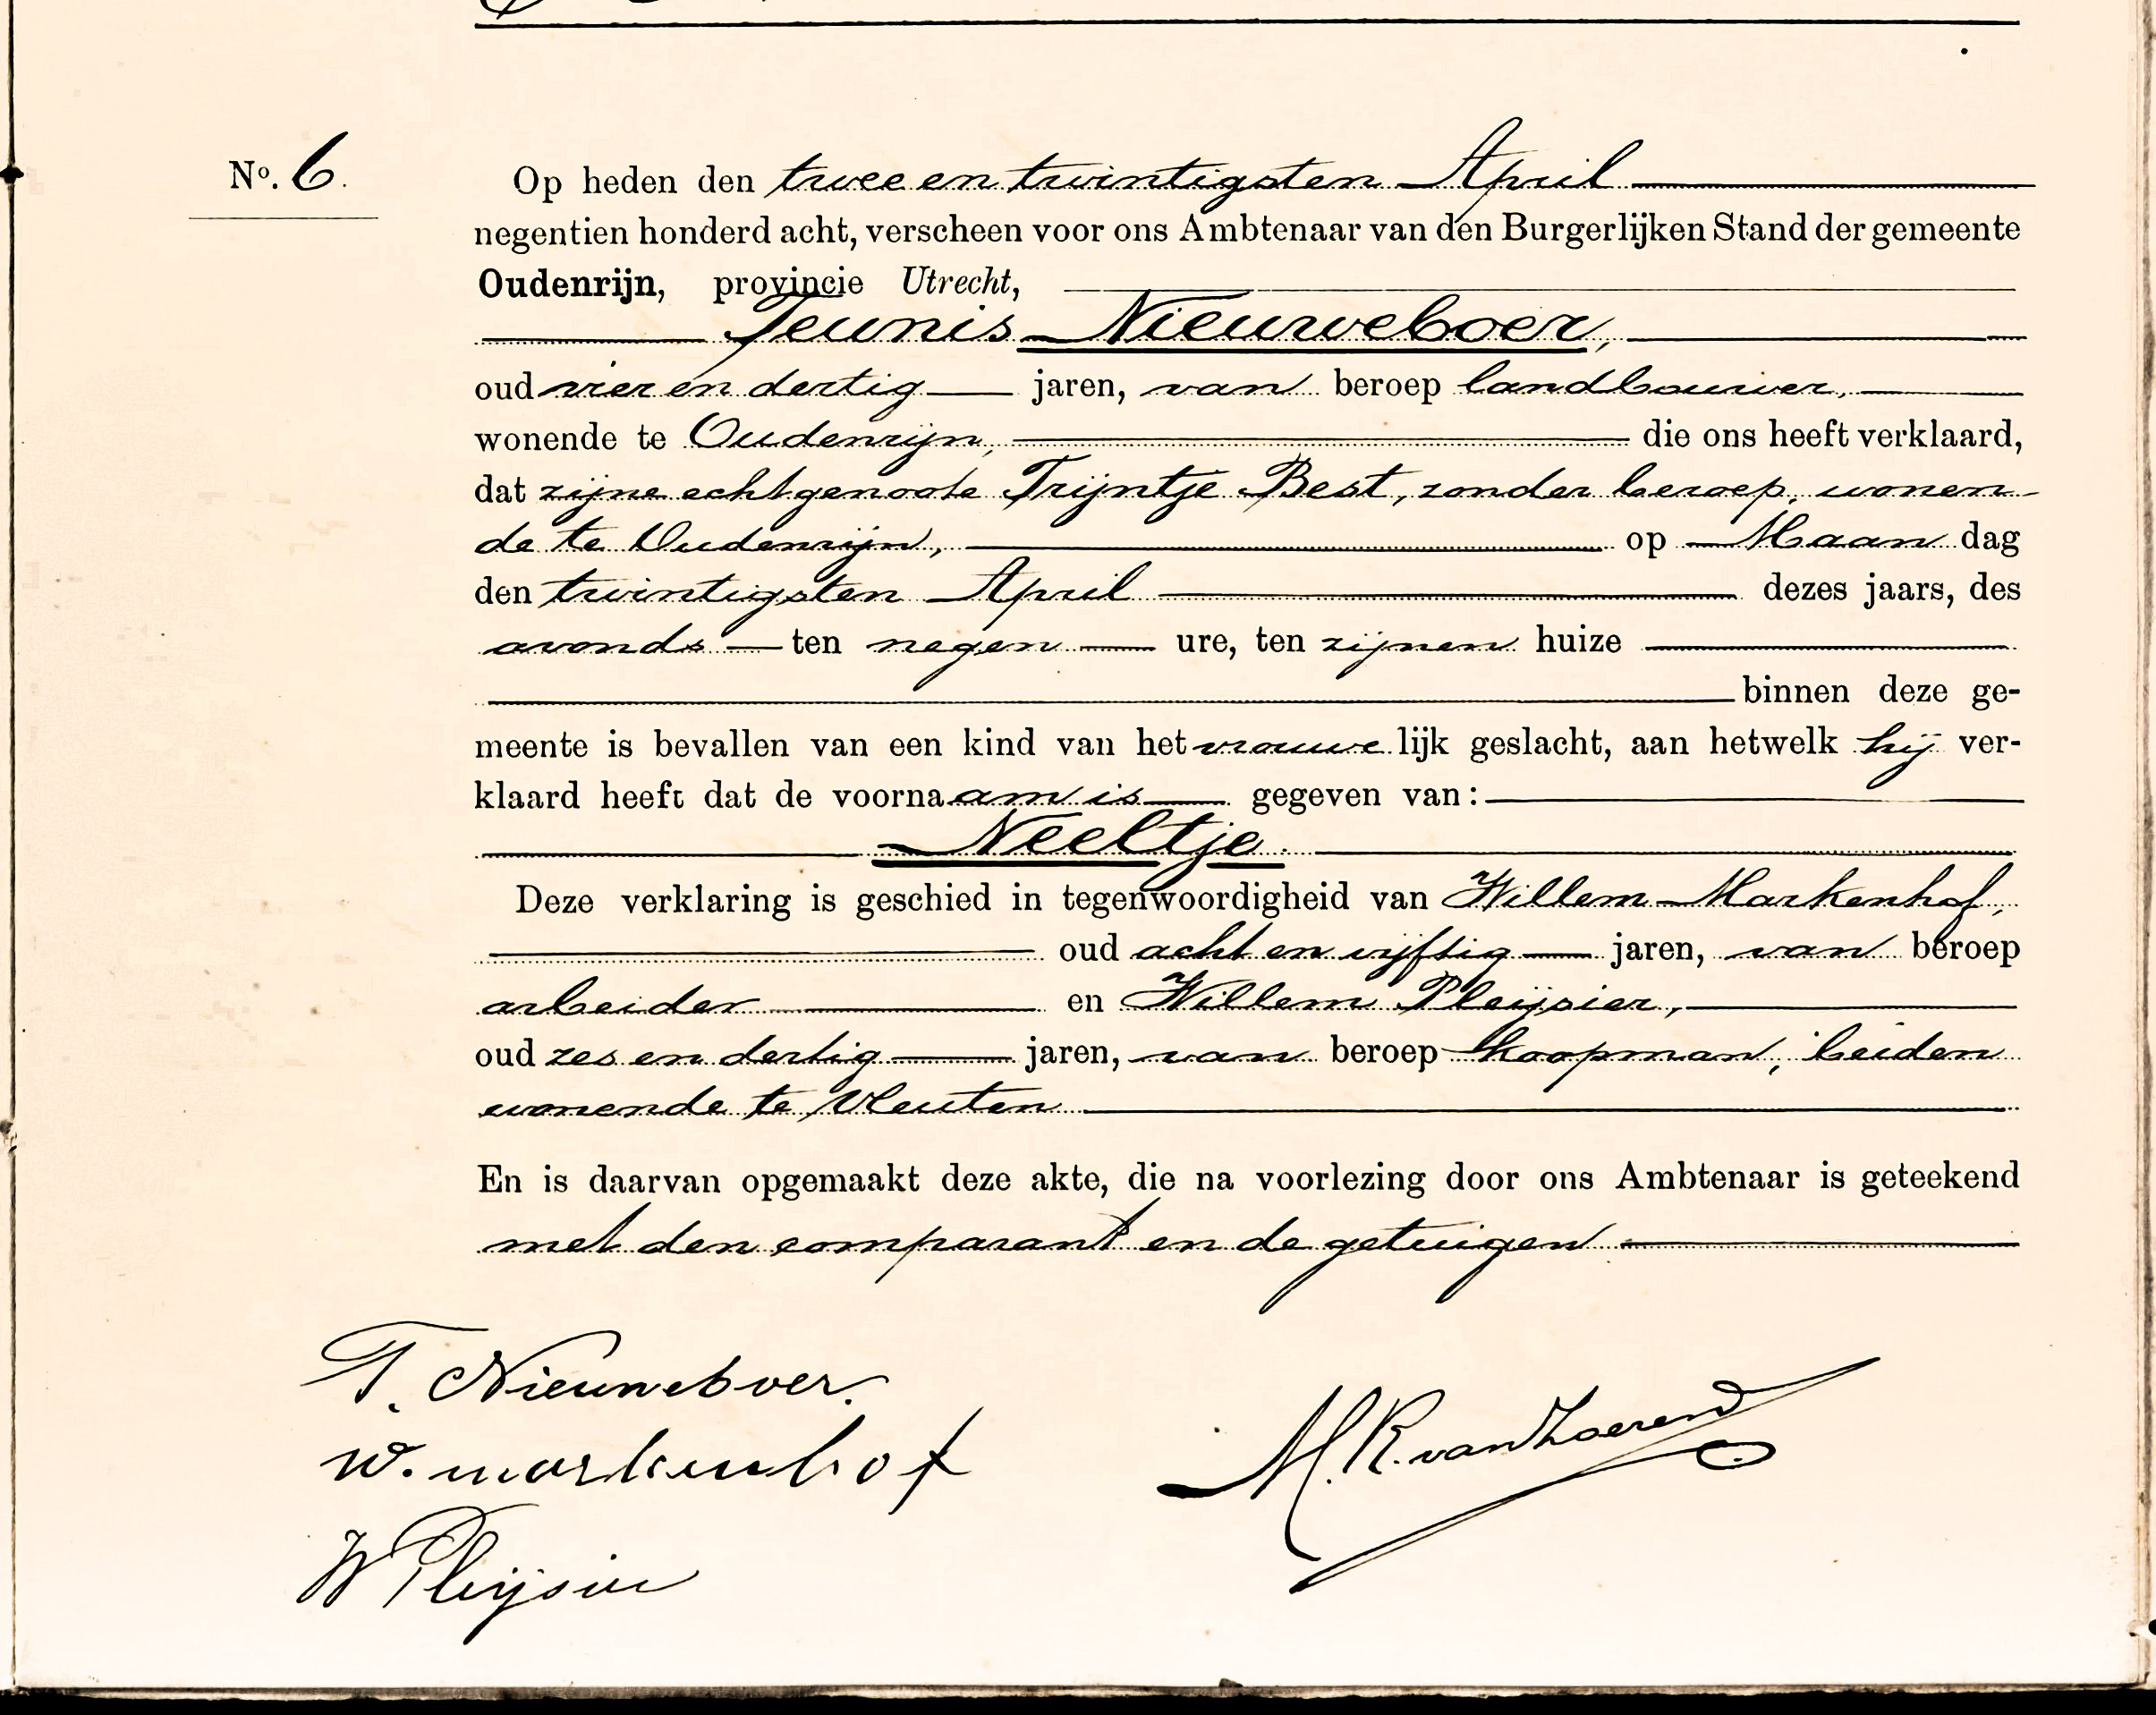 No. 6.
Op heden den twee en twintigsten April
negentien honderd acht, verscheen voor ons Ambtenaar van den Burgerlijken Stand der gemeente
Oudenrijn, provincie Utrecht,
Teunis Nieuweboer,
oud vier en dertig jaren, van beroep landbouwer,
wonende te Oudenrijn, die ons heeft verklaard,
dat zijne echtgenoote Trijntje Best, zonder beroep, wonen-
de te Oudenrijn, op Maandag
den twintigsten April dezes jaars, des
avonds ten negen ure, ten zijnen huize
binnen deze ge-
meente is bevallen van een kind van het vrouwelijk geslacht, aan hetwelk hij ver-
klaard heeft dat de voornaam is gegeven van:
Neeltje.
Deze verklaring is geschied in tegenwoordigheid van Willem Markenhof,
oud acht en vijftig jaren, van beroep
arbeider en Willem Pleijsier,
oud zes en dertig jaren, van beroep koopman, beiden
wonende te Vleuten
En is daarvan opgemaakt deze akte, die na voorlezing door ons Ambtenaar is geteekend
met den comparant en de getuigen
T. Nieuweboer.
W. markenhof
M. R. van
W Pleijsier